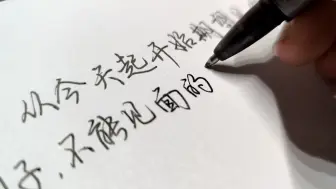 从今天起开始期
子，不能见面的